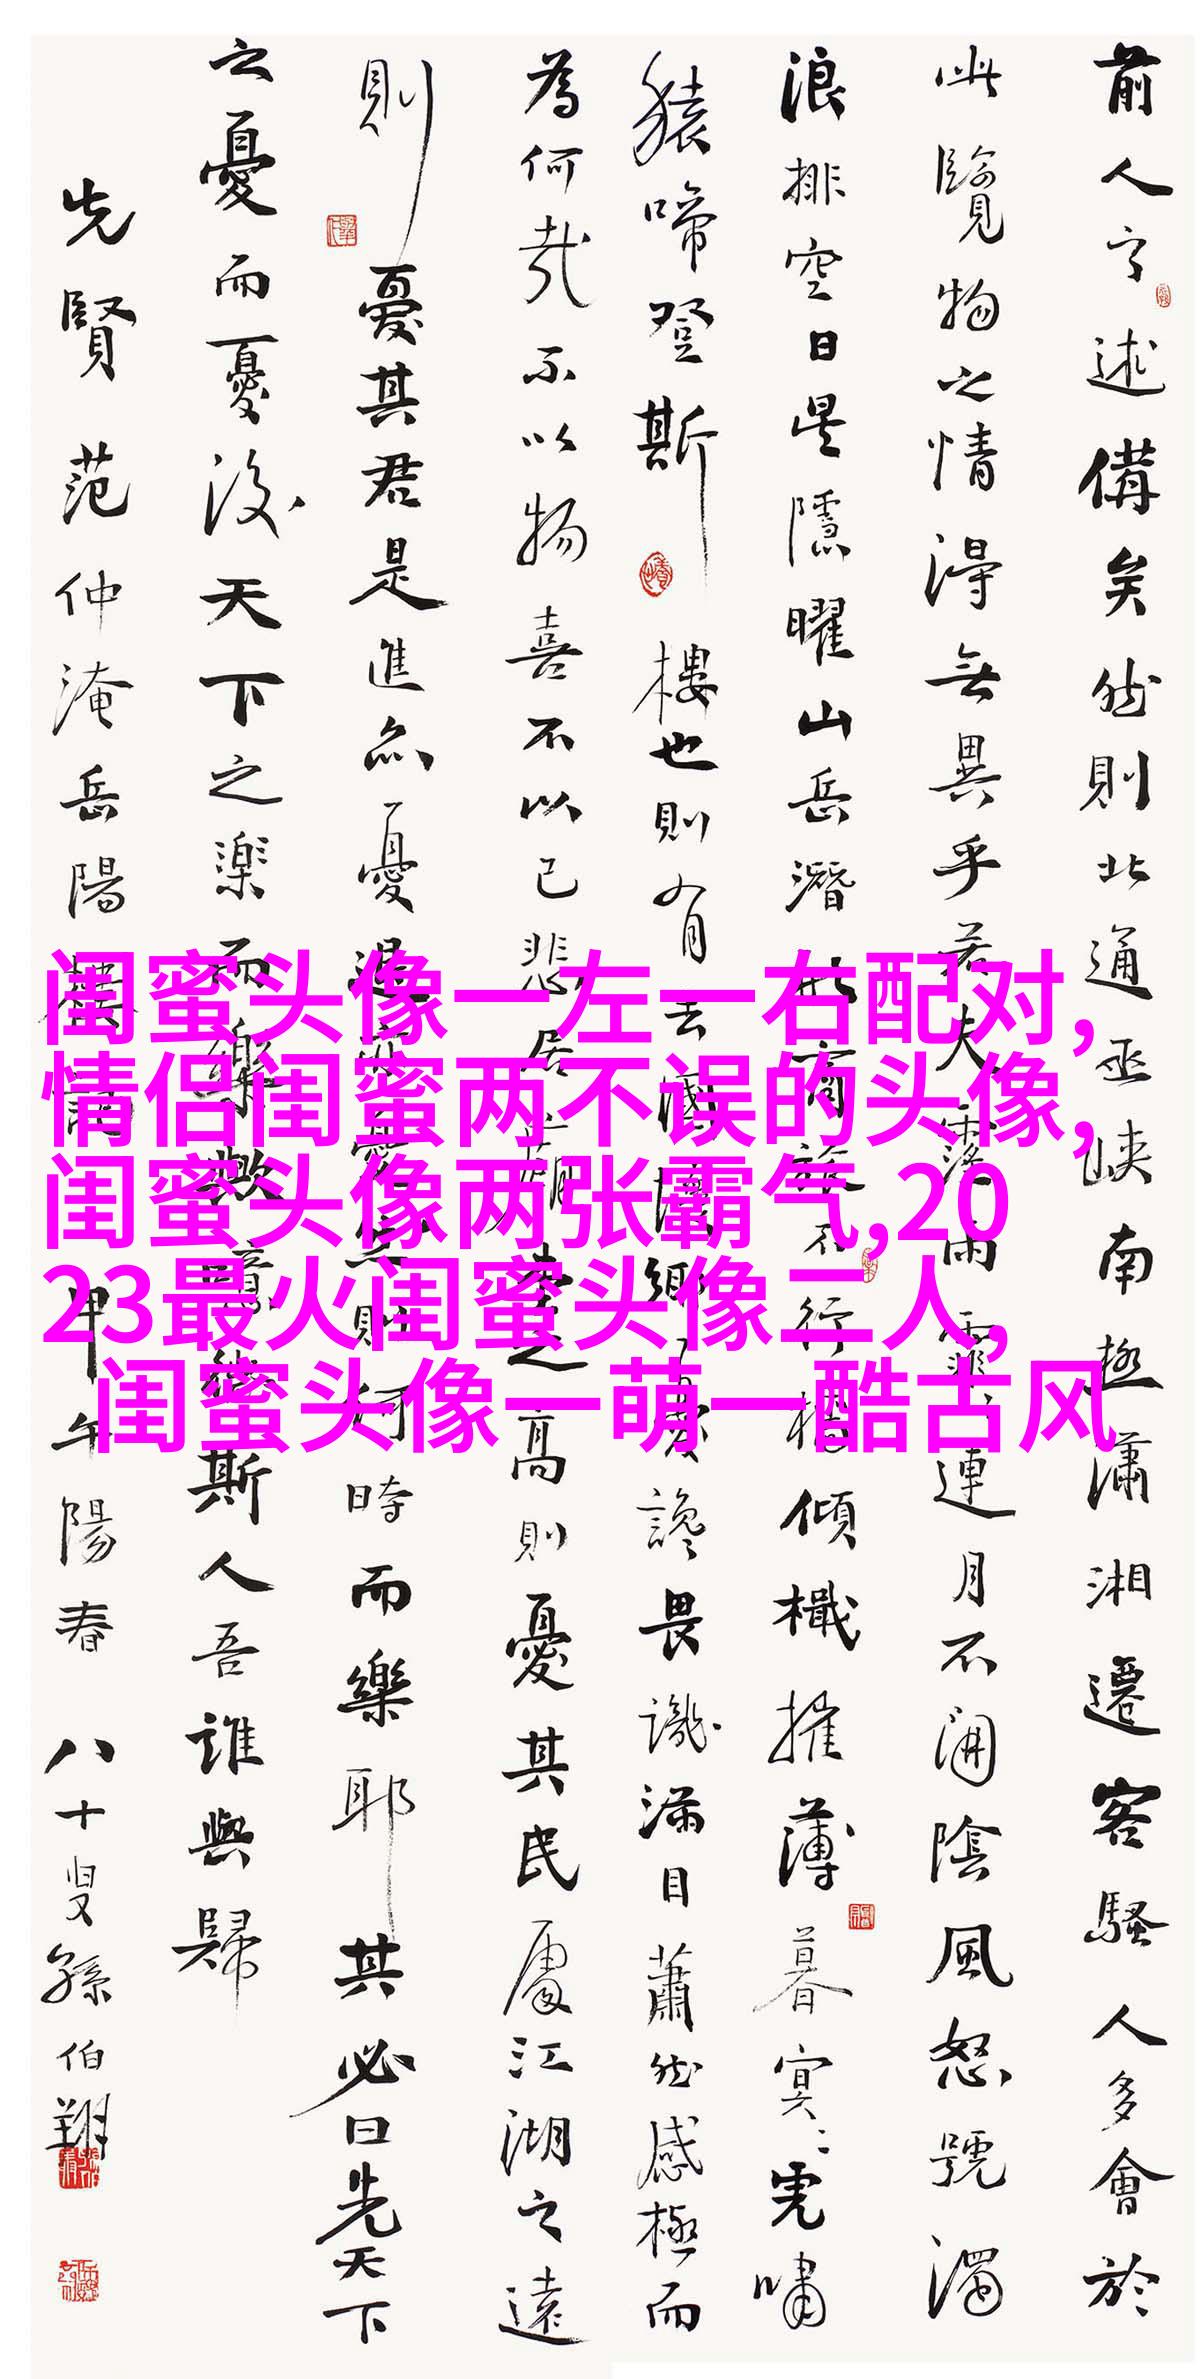 前人之述備矣然則北通巫峽南極瀟湘遷客騷人多會於
此覽物之情得無異乎若夫霪雨霏霏連月不開陰風怒號濁
浪排空日星隱曜山岳潛形商旅不行檣傾檝摧薄暮冥冥虎嘯
猿啼登斯樓也則有去國懷鄉憂讒畏譏滿目蕭然感極而
為何哉不以物喜不以己悲居廟堂之高則憂其民處江湖之遠
則憂其君是進亦憂退亦憂然則何時而樂耶其必曰先天下
之憂而憂後天下之樂而樂歟噫微斯人吾誰與歸
先賢范仲淹岳陽樓記甲午陽春 八十叟孫伯翔
闺蜜头像一左一右配对,
情侣闺蜜两不误的头像,
闺蜜头像两张霸气,20
23最火闺蜜头像二人,
闺蜜头像一萌一酷古风